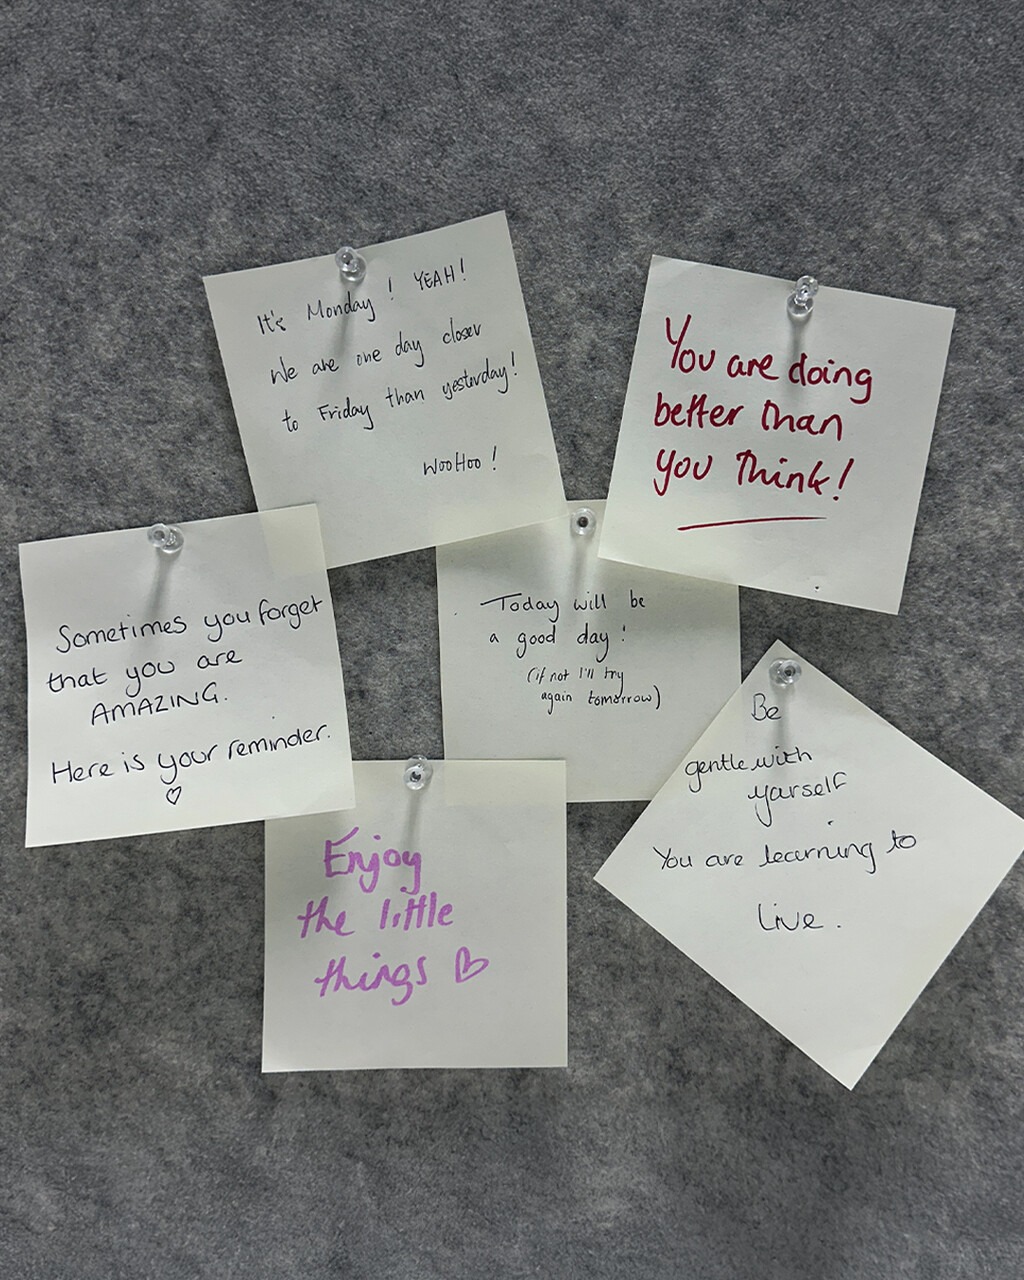 It's Monday! YEAH!
We are one day closer
to Friday than yesterday!
WooHoo!
You are doing
better than
you think!
Sometimes you forget
that you are
AMAZING.
Here is your reminder.
♡
Today will be
a good day!
(if not I'll try
again tomorrow)
Be
gentle with
yarself
You are learning to
live.
Enjoy
the little
things ♡